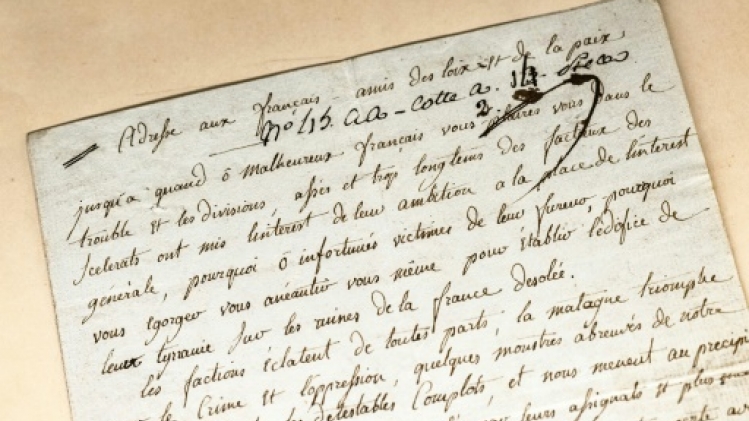 Adresse aux français amis des loix et de la paix
No 115. aa - cotte a. 1/3.
2.
jusqu'a quand ô malheureux français vous plaires vous dans le
trouble et les divisions, assés et trop longtems des factieux des
scelerats ont mis l'interest de leur ambition a la place de l'interest
générale, pourquoi ô infortunés victimes de leur fureur, pourquoi
vous egorger vous anéantir vous même pour établir l'édifice de
leur tyrannie sur les ruines de la france desolée.
les factions éclatent de toutes parts, la matagne triomphe
le Crime et l'oppression, quelques monstres abreuvés de notre
detestables Complots, et nous menent au precip
leurs assignats et plus